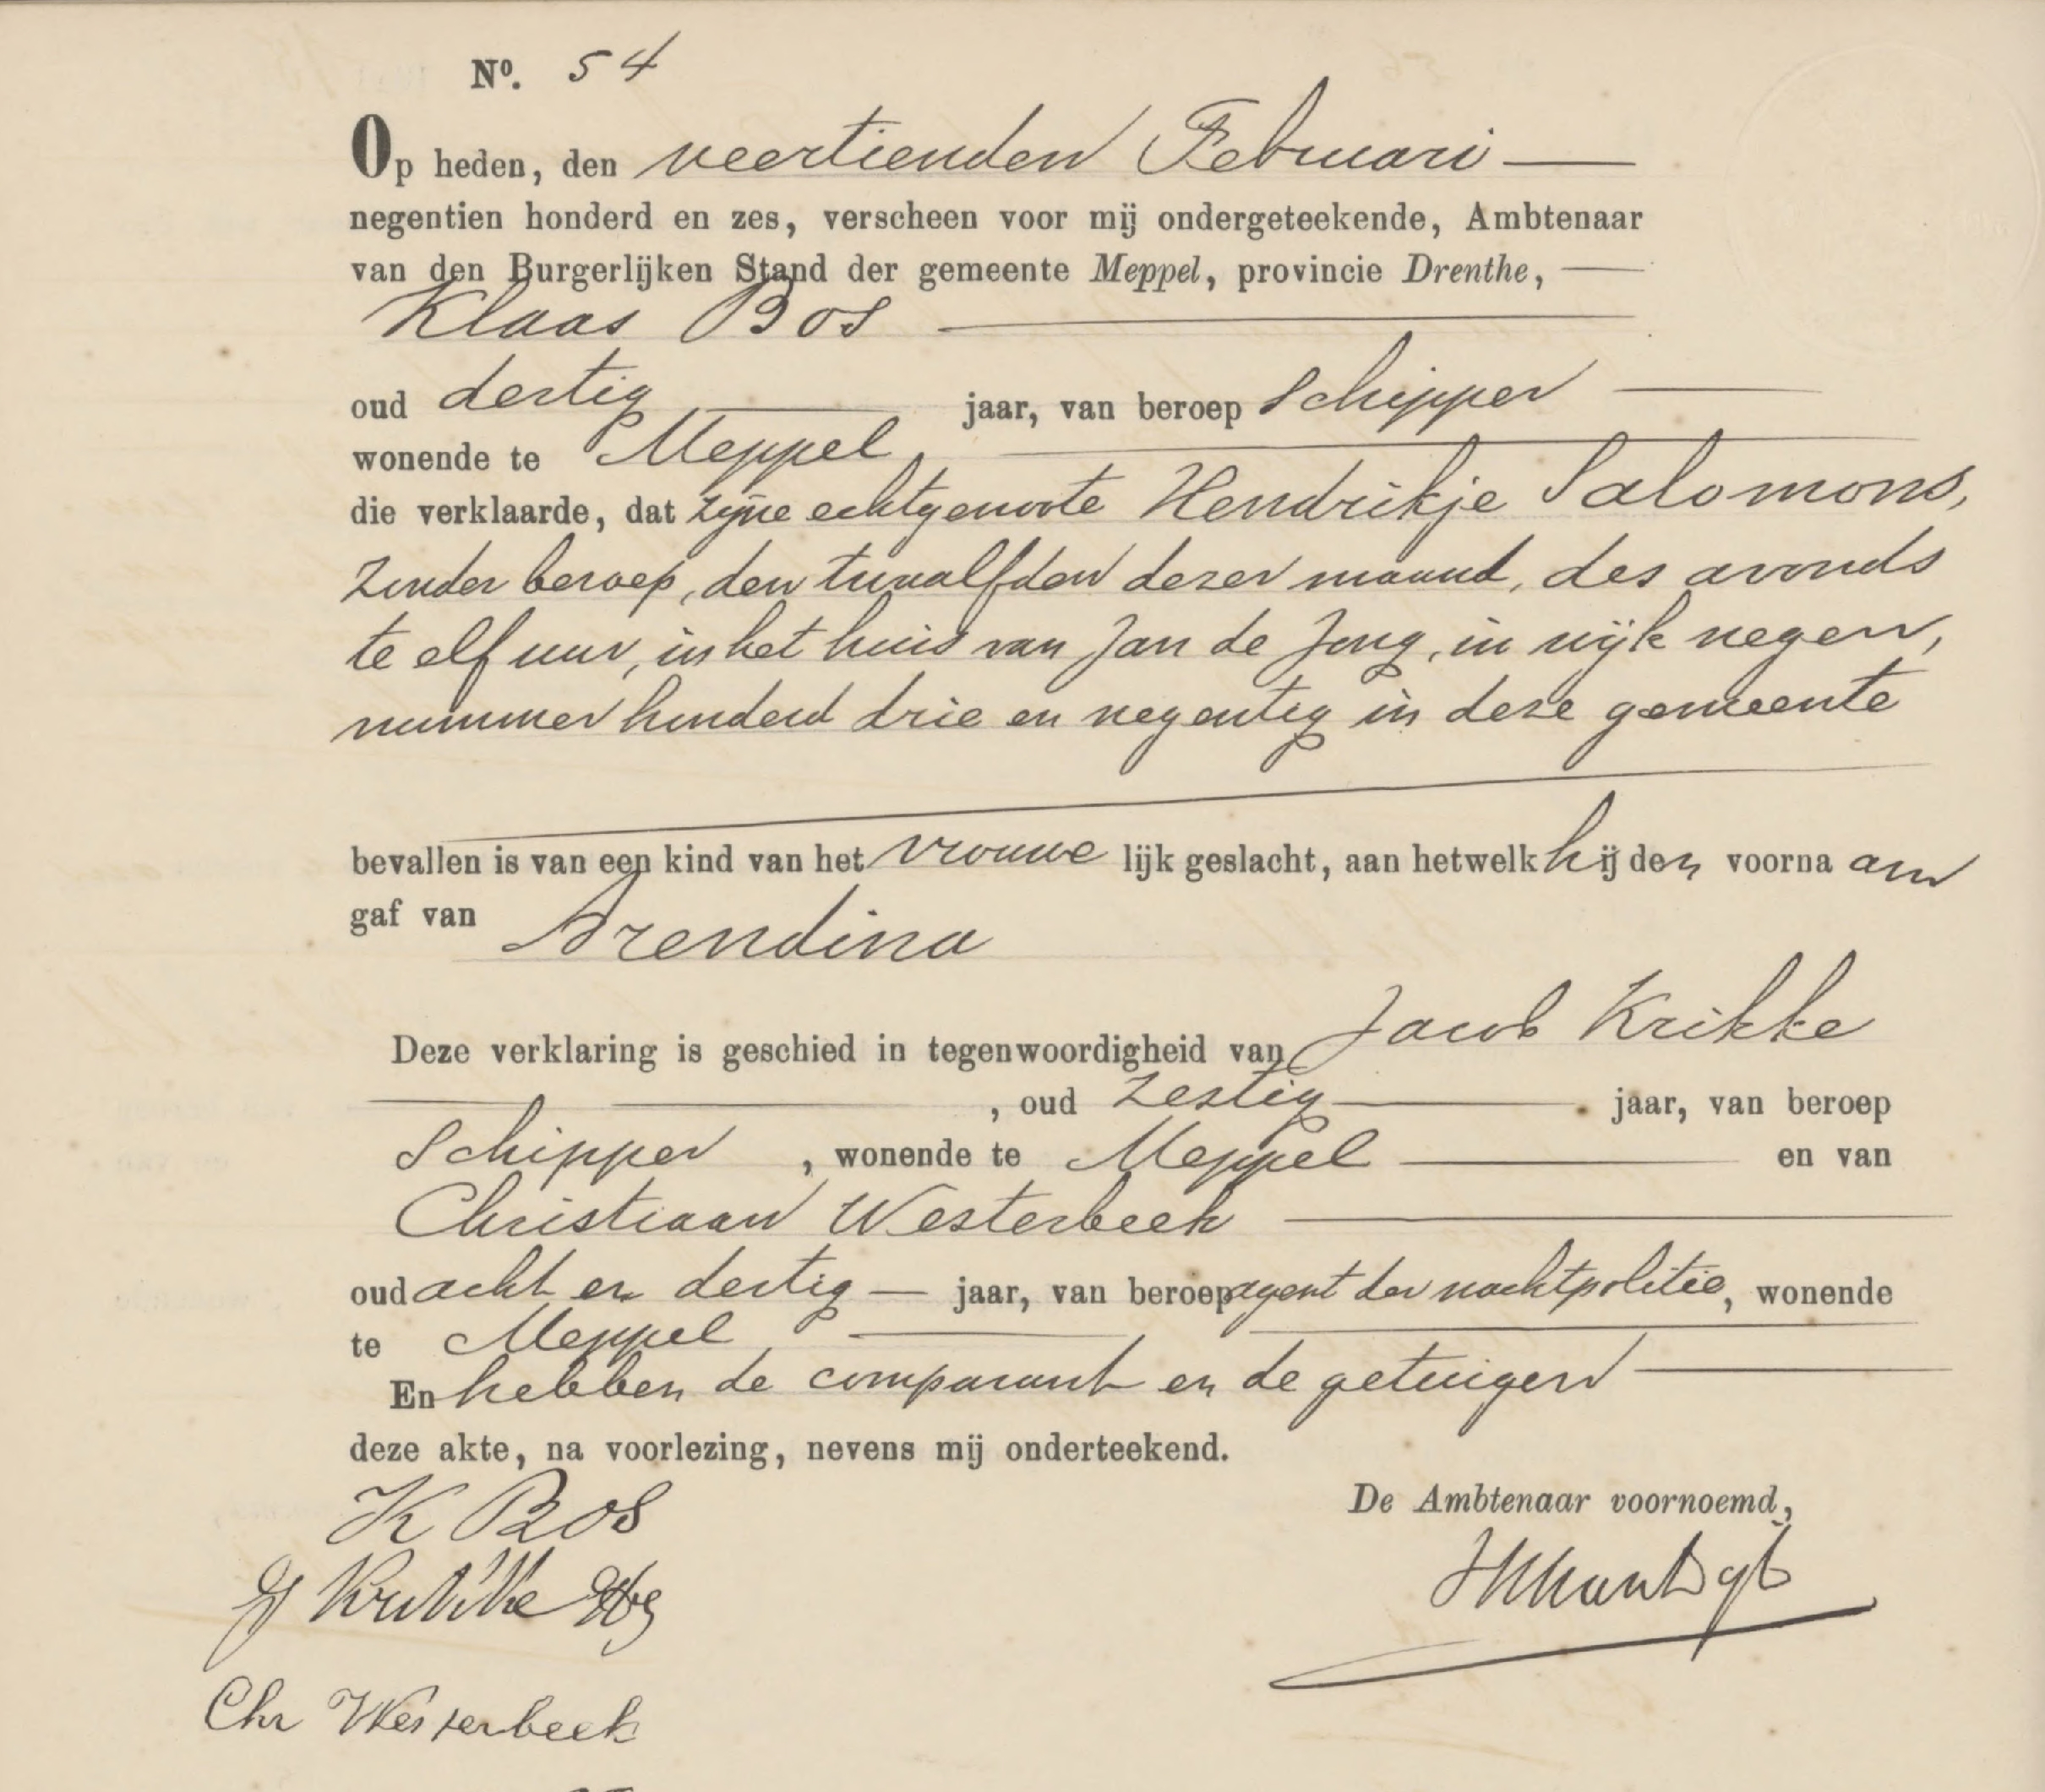 Nº. 54
Op heden, den veertienden Februari
negentien honderd en zes, verscheen voor mij ondergeteekende, Ambtenaar
van den Burgerlijken Stand der gemeente Meppel, provincie Drenthe,
Klaas Bos
oud dertig jaar, van beroep Schipper
wonende te Meppel,
die verklaarde, dat zijne echtgenoote Hendrikje Salomons,
zonder beroep, den twaalfden dezer maand, des avonds
te elf uur, in het huis van Jan de Jong, in wijk negen,
nummer honderd drie en negentig in deze gemeente
bevallen is van een kind van het vrouwe lijk geslacht, aan hetwelk hij den voorna am
gaf van Arendina
Deze verklaring is geschied in tegenwoordigheid van Jacob Krikke
, oud zestig jaar, van beroep
Schipper , wonende te Meppel en van
Christiaan Westerbeek
oud acht en dertig jaar, van beroep agent der nachtpolitie, wonende
te Meppel
En hebben de comparant en de getuigen
deze akte, na voorlezing, nevens mij onderteekend.
De Ambtenaar voornoemd,
K Bos
J Krikke
Chr Westerbeek